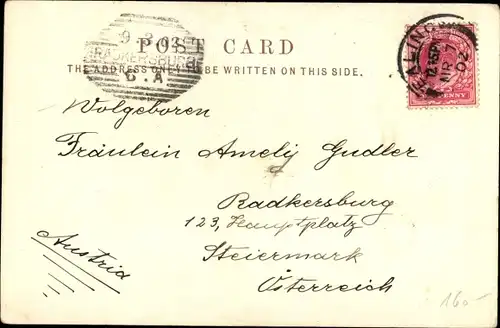 POST CARD
THE ADDRESS ONLY TO BE WRITTEN ON THIS SIDE.
RADKERSBURG
B.A
EALING
12.15PM
AP 7
02
PENNY
Wolgeboren
Fräulein Amelij Gudler
Radkersburg
123, Hauptplatz
Steiermark
Österreich
Austria
160